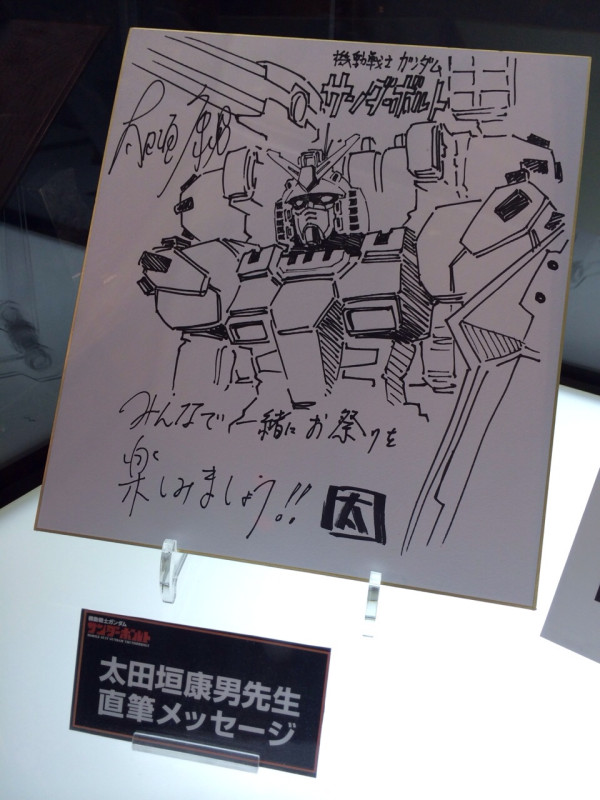 機動戦士 ガンダム
サンダーボルト
みんなで一緒にお祭りを
楽しみましょう!!
太
機動戦士ガンダム
サンダーボルト
太田垣康男先生
直筆メッセージ